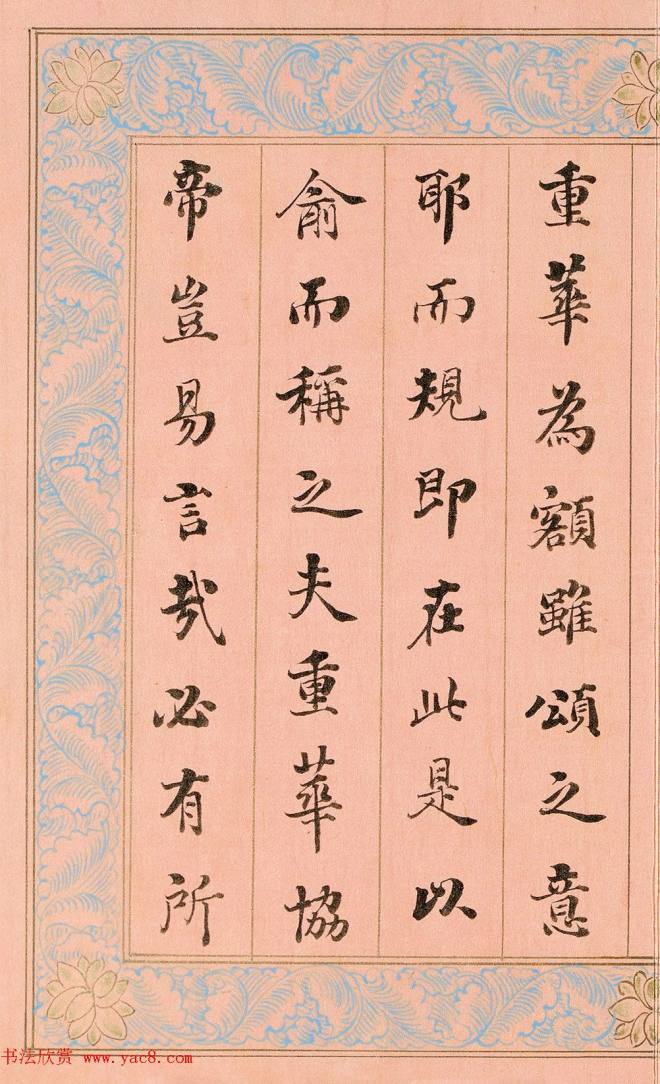 重華為額雖頌之意
耶而規即在此是以
俞而稱之夫重華協
帝豈易言哉必有所
书法欣赏 www.yac8.com